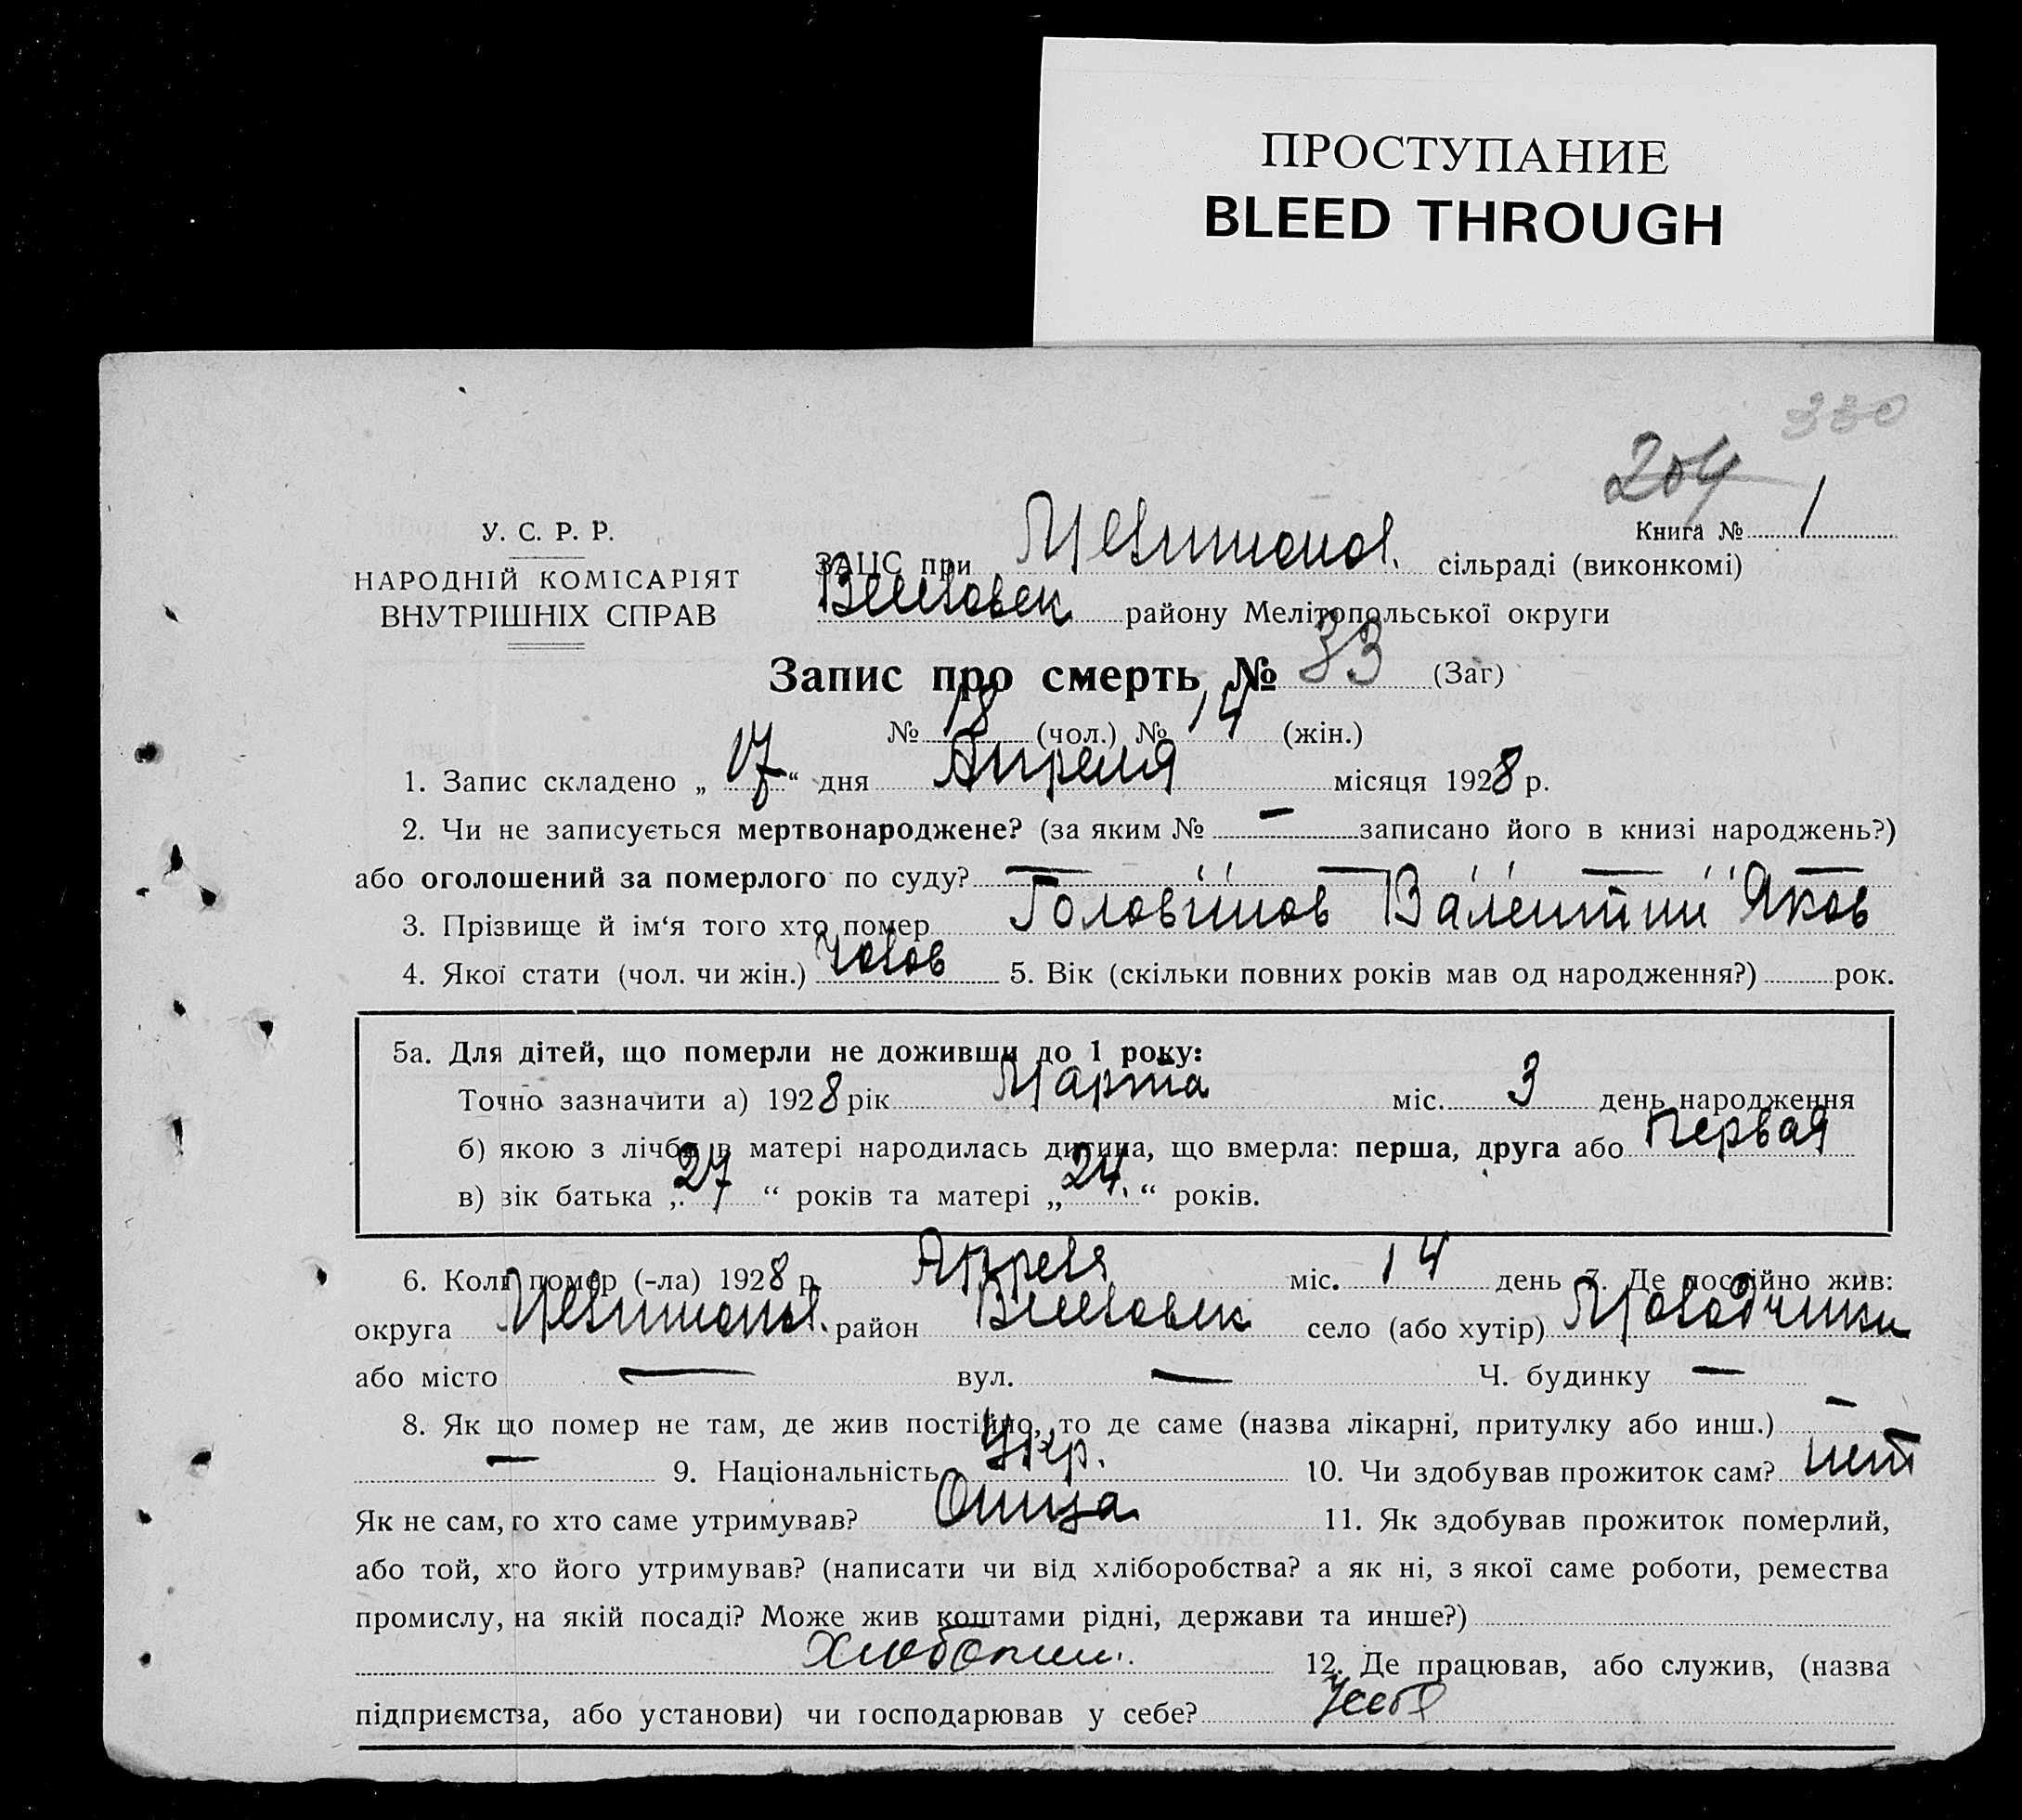 ПРОСТУПАНИЕ
BLEED THROUGH
330
204
Книга № 1
У. С. Р. Р.
НАРОДНІЙ КОМІСАРІЯТ
ВНУТРІШНІХ СПРАВ
ЗАЦС при Мелитопол. сільраді (виконкомі)
району Мелітопольської округи
Запис про смерть № 33 (Заг)
№ 18 (чол.) № 14 (жін.)
1. Запис складено „ 17 “ дня Апреля місяця 1928 р.
2. Чи не записується мертвонароджене? (за яким № — записано його в книзі народжень?)
або оголошений за померлого по суду?
3. Прізвище й ім‘я того хто помер Головинов Валентин Яков
4. Якої стати (чол. чи жін.) 5. Вік (скільки повних років мав од народження?) рок.
5а. Для дітей, що померли не доживши до 1 року:
Точно зазначити а) 1928 рік Марта міс. 3 день народження
б) якою з лічби в матері народилась дитина, що вмерла: перша, друга або первая
в) вік батька „ 27 “ років та матері „ 24. “ років.
6. Коли помер (-ла) 1928 р. Апреля міс. 14 день 7. Де постійно жив:
округа Мелитопол. район село (або хутір)
або місто — вул. — Ч. будинку —
8. Як що помер не там, де жив постійно, то де саме (назва лікарні, притулку або инш.) —
— 9. Національність Укр. 10. Чи здобував прожиток сам? нет
Як не сам, то хто саме утримував? Отца 11. Як здобував прожиток померлий,
або той, хто його утримував? (написати чи від хліборобства? а як ні, з якої саме роботи, ремества
промислу, на якій посаді? Може жив коштами рідні, держави та инше?)
Хлебопаш. 12. Де працював, або служив, (назва
підприємства, або установи) чи господарював у себе? У себя